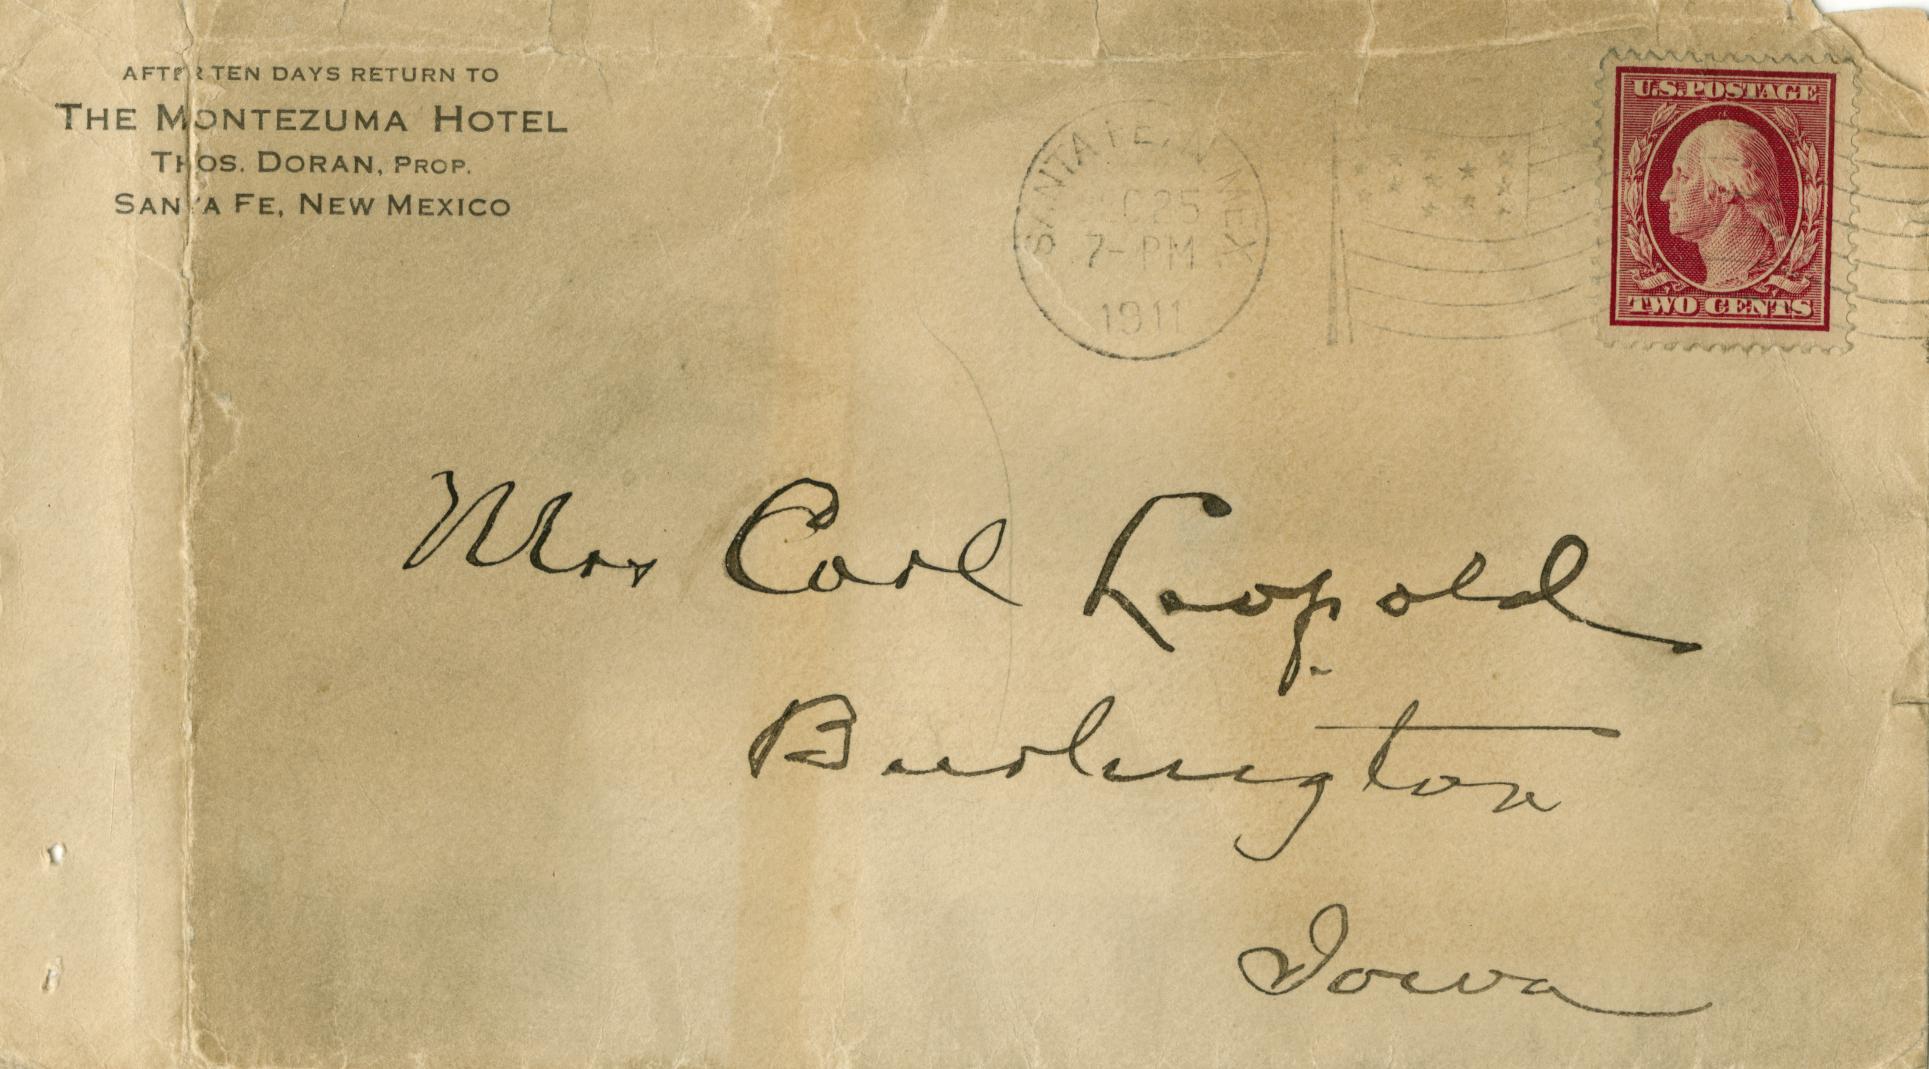 AFTER TEN DAYS RETURN TO
THE MONTEZUMA HOTEL
THOS. DORAN, PROP.
SANTA FE, NEW MEXICO
SANTA FE, N. MEX.
25
7-PM
1911
U.S. POSTAGE
TWO CENTS
Mrs Carl Leopold
Burlington
Iowa